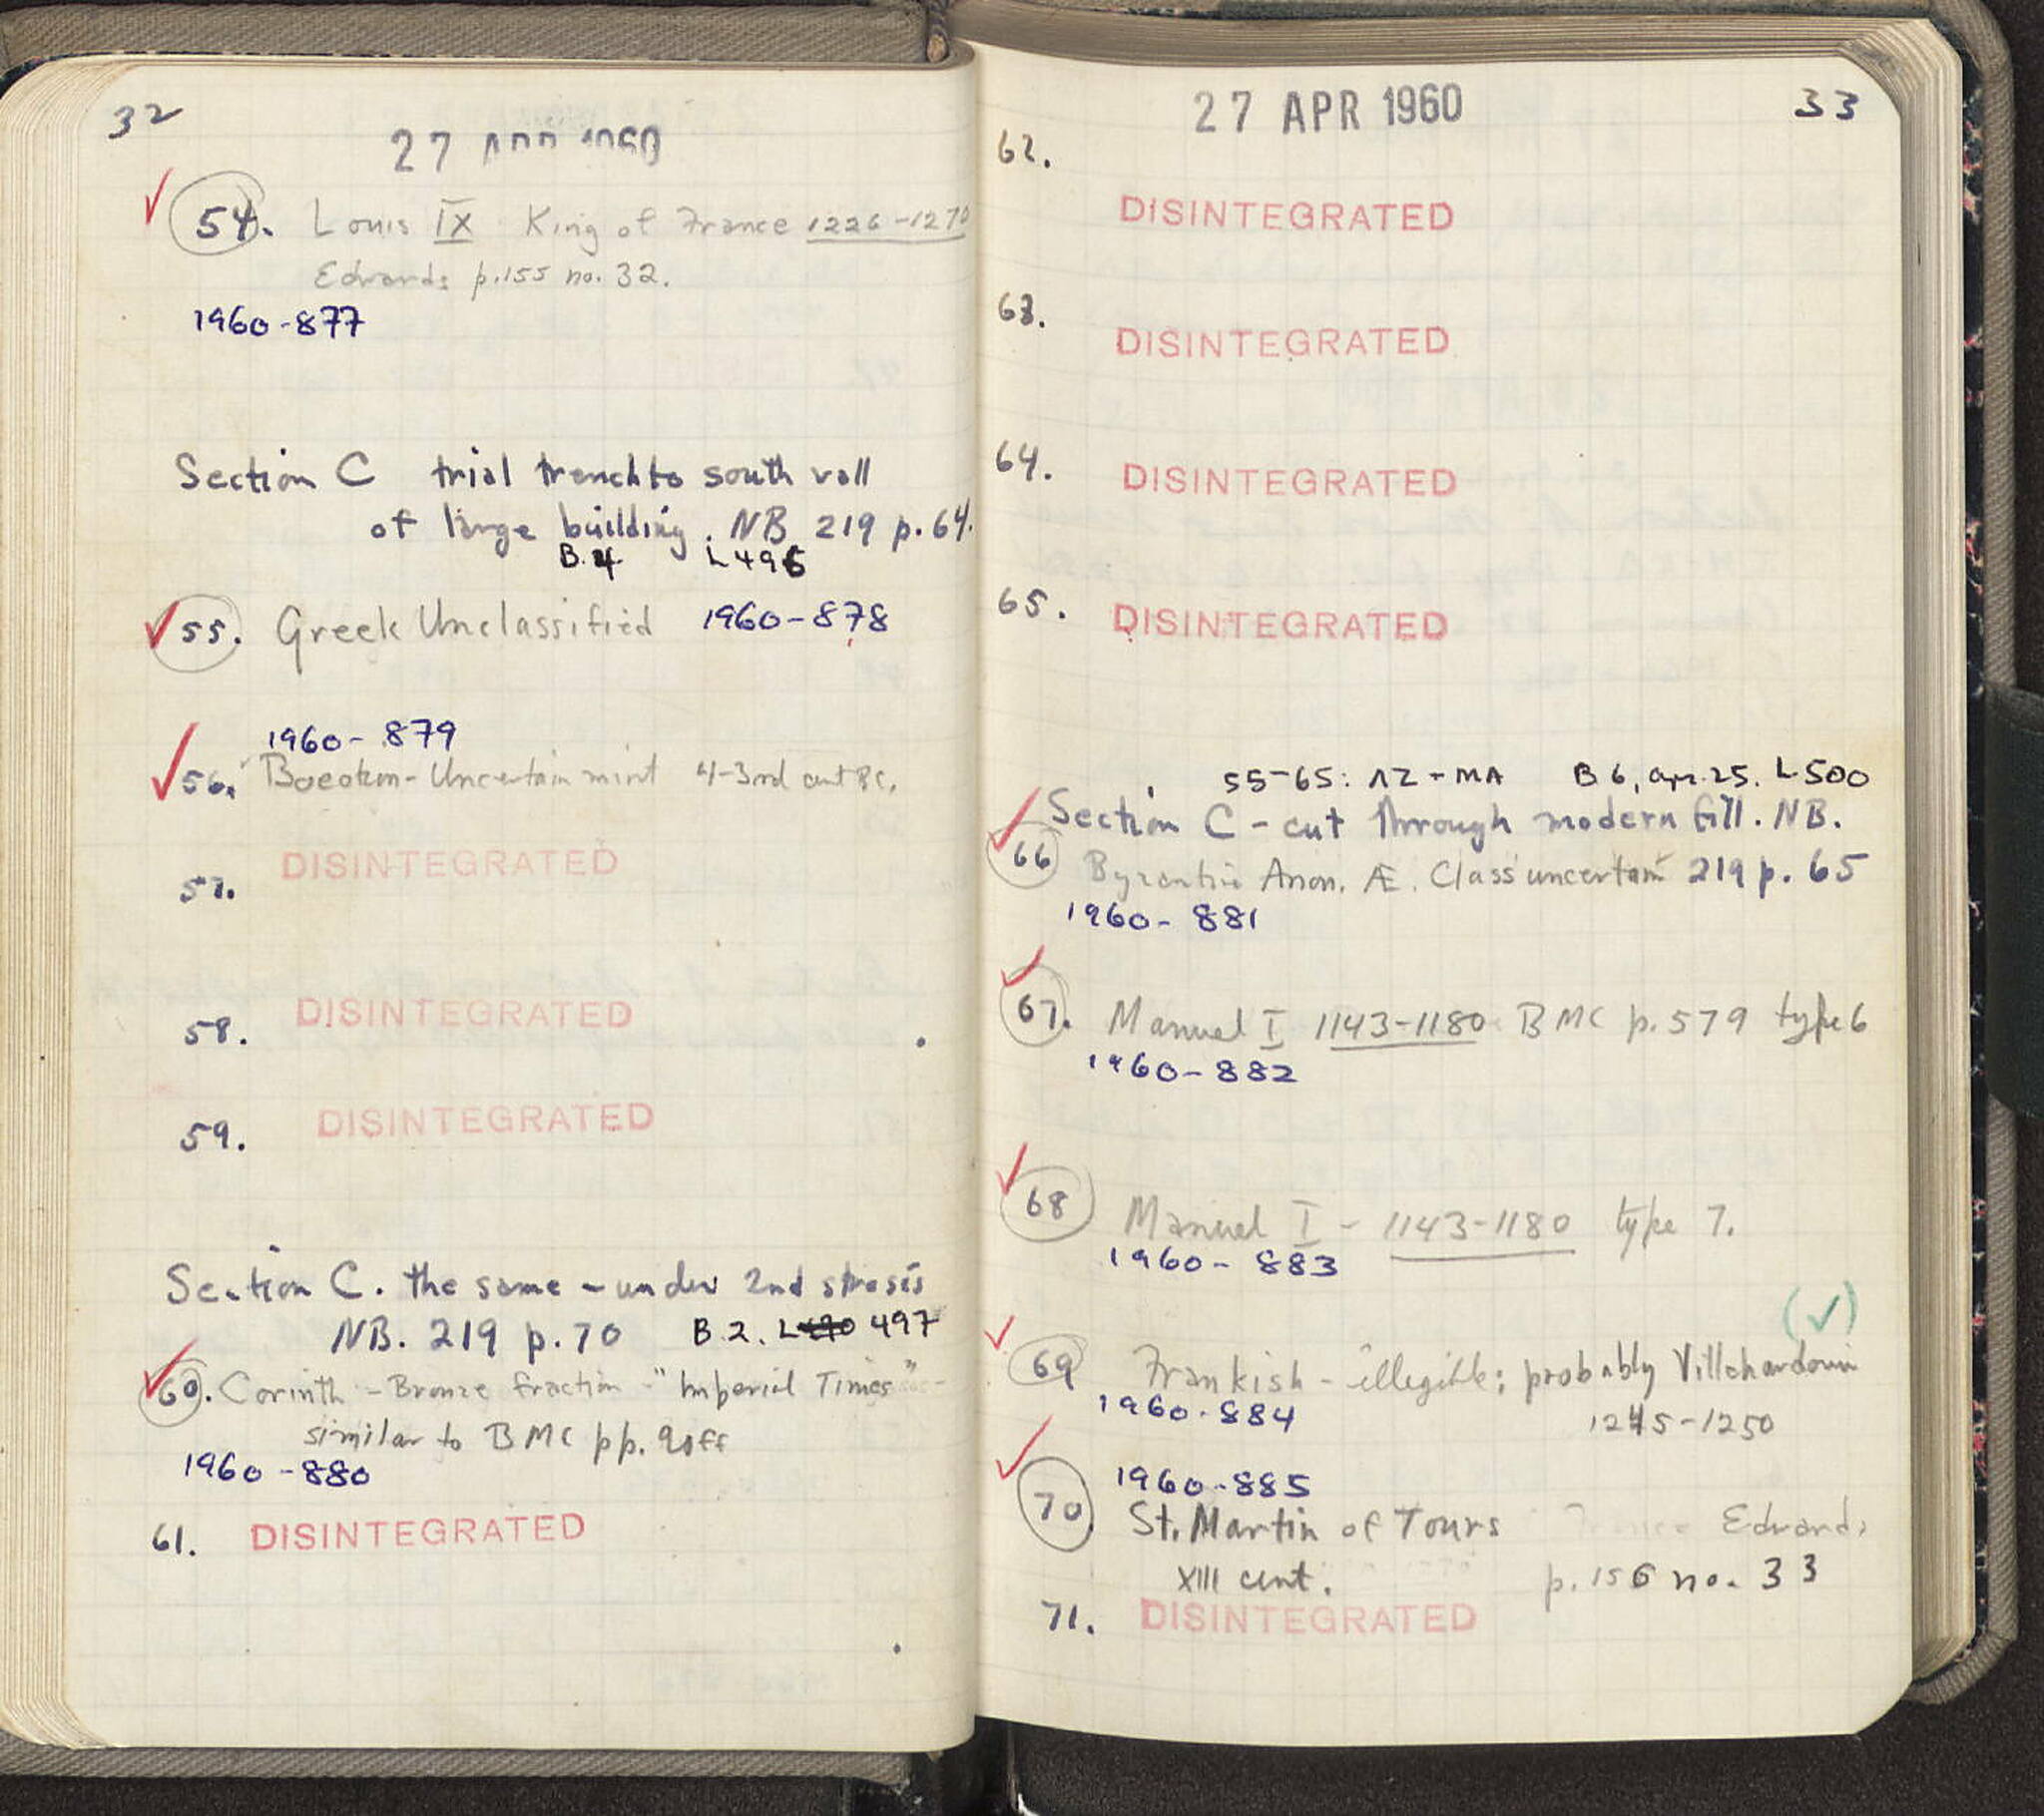 32
27 APR 1960
54. Louis IX King of France 1226-1270
Edwards p.155 no. 32.
1960-877
Section C trial trench to south wall
of large building. NB 219 p.64.
B.4 L496
55. Greek Unclassified 1960-878
1960-879
56. Boeotian-Uncertain mint 4-3rd cent BC.
57. DISINTEGRATED
58. DISINTEGRATED
59. DISINTEGRATED
Section C. the same - under 2nd
NB. 219 p.70 B.2. L 497
60. Corinth - Bronze fraction - "Imperial Times"
similar to BMC pp. 90ff
1960-880
61. DISINTEGRATED
27 APR 1960 33
62.
DISINTEGRATED
63.
DISINTEGRATED
64.
DISINTEGRATED
65.
DISINTEGRATED
55-65: ΛZ-MA B6, apr. 25. L500
Section C - cut through modern fill. NB.
66 Byzantine Anon. Æ. Class uncertain 219 p. 65
1960-881
67. Manuel I 1143-1180 BMC p.579 type 6
1960-882
68 Manuel I - 1143-1180 type 7.
1960-883
(✓)
69 Frankish - illegible; probably Villehardouin
1960-884 1245-1250
1960-885
70. St. Martin of Tours France Edwards
XIII cent. p.156 no. 33
71. DISINTEGRATED